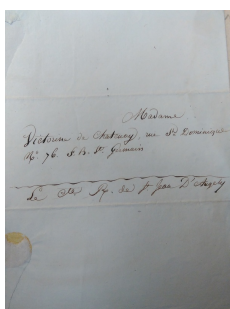 Madame
Victorine de Chatenay, rue St Dominique
No. 76. f. b. St Germain
Le Cte R. de St Jean D'Angely